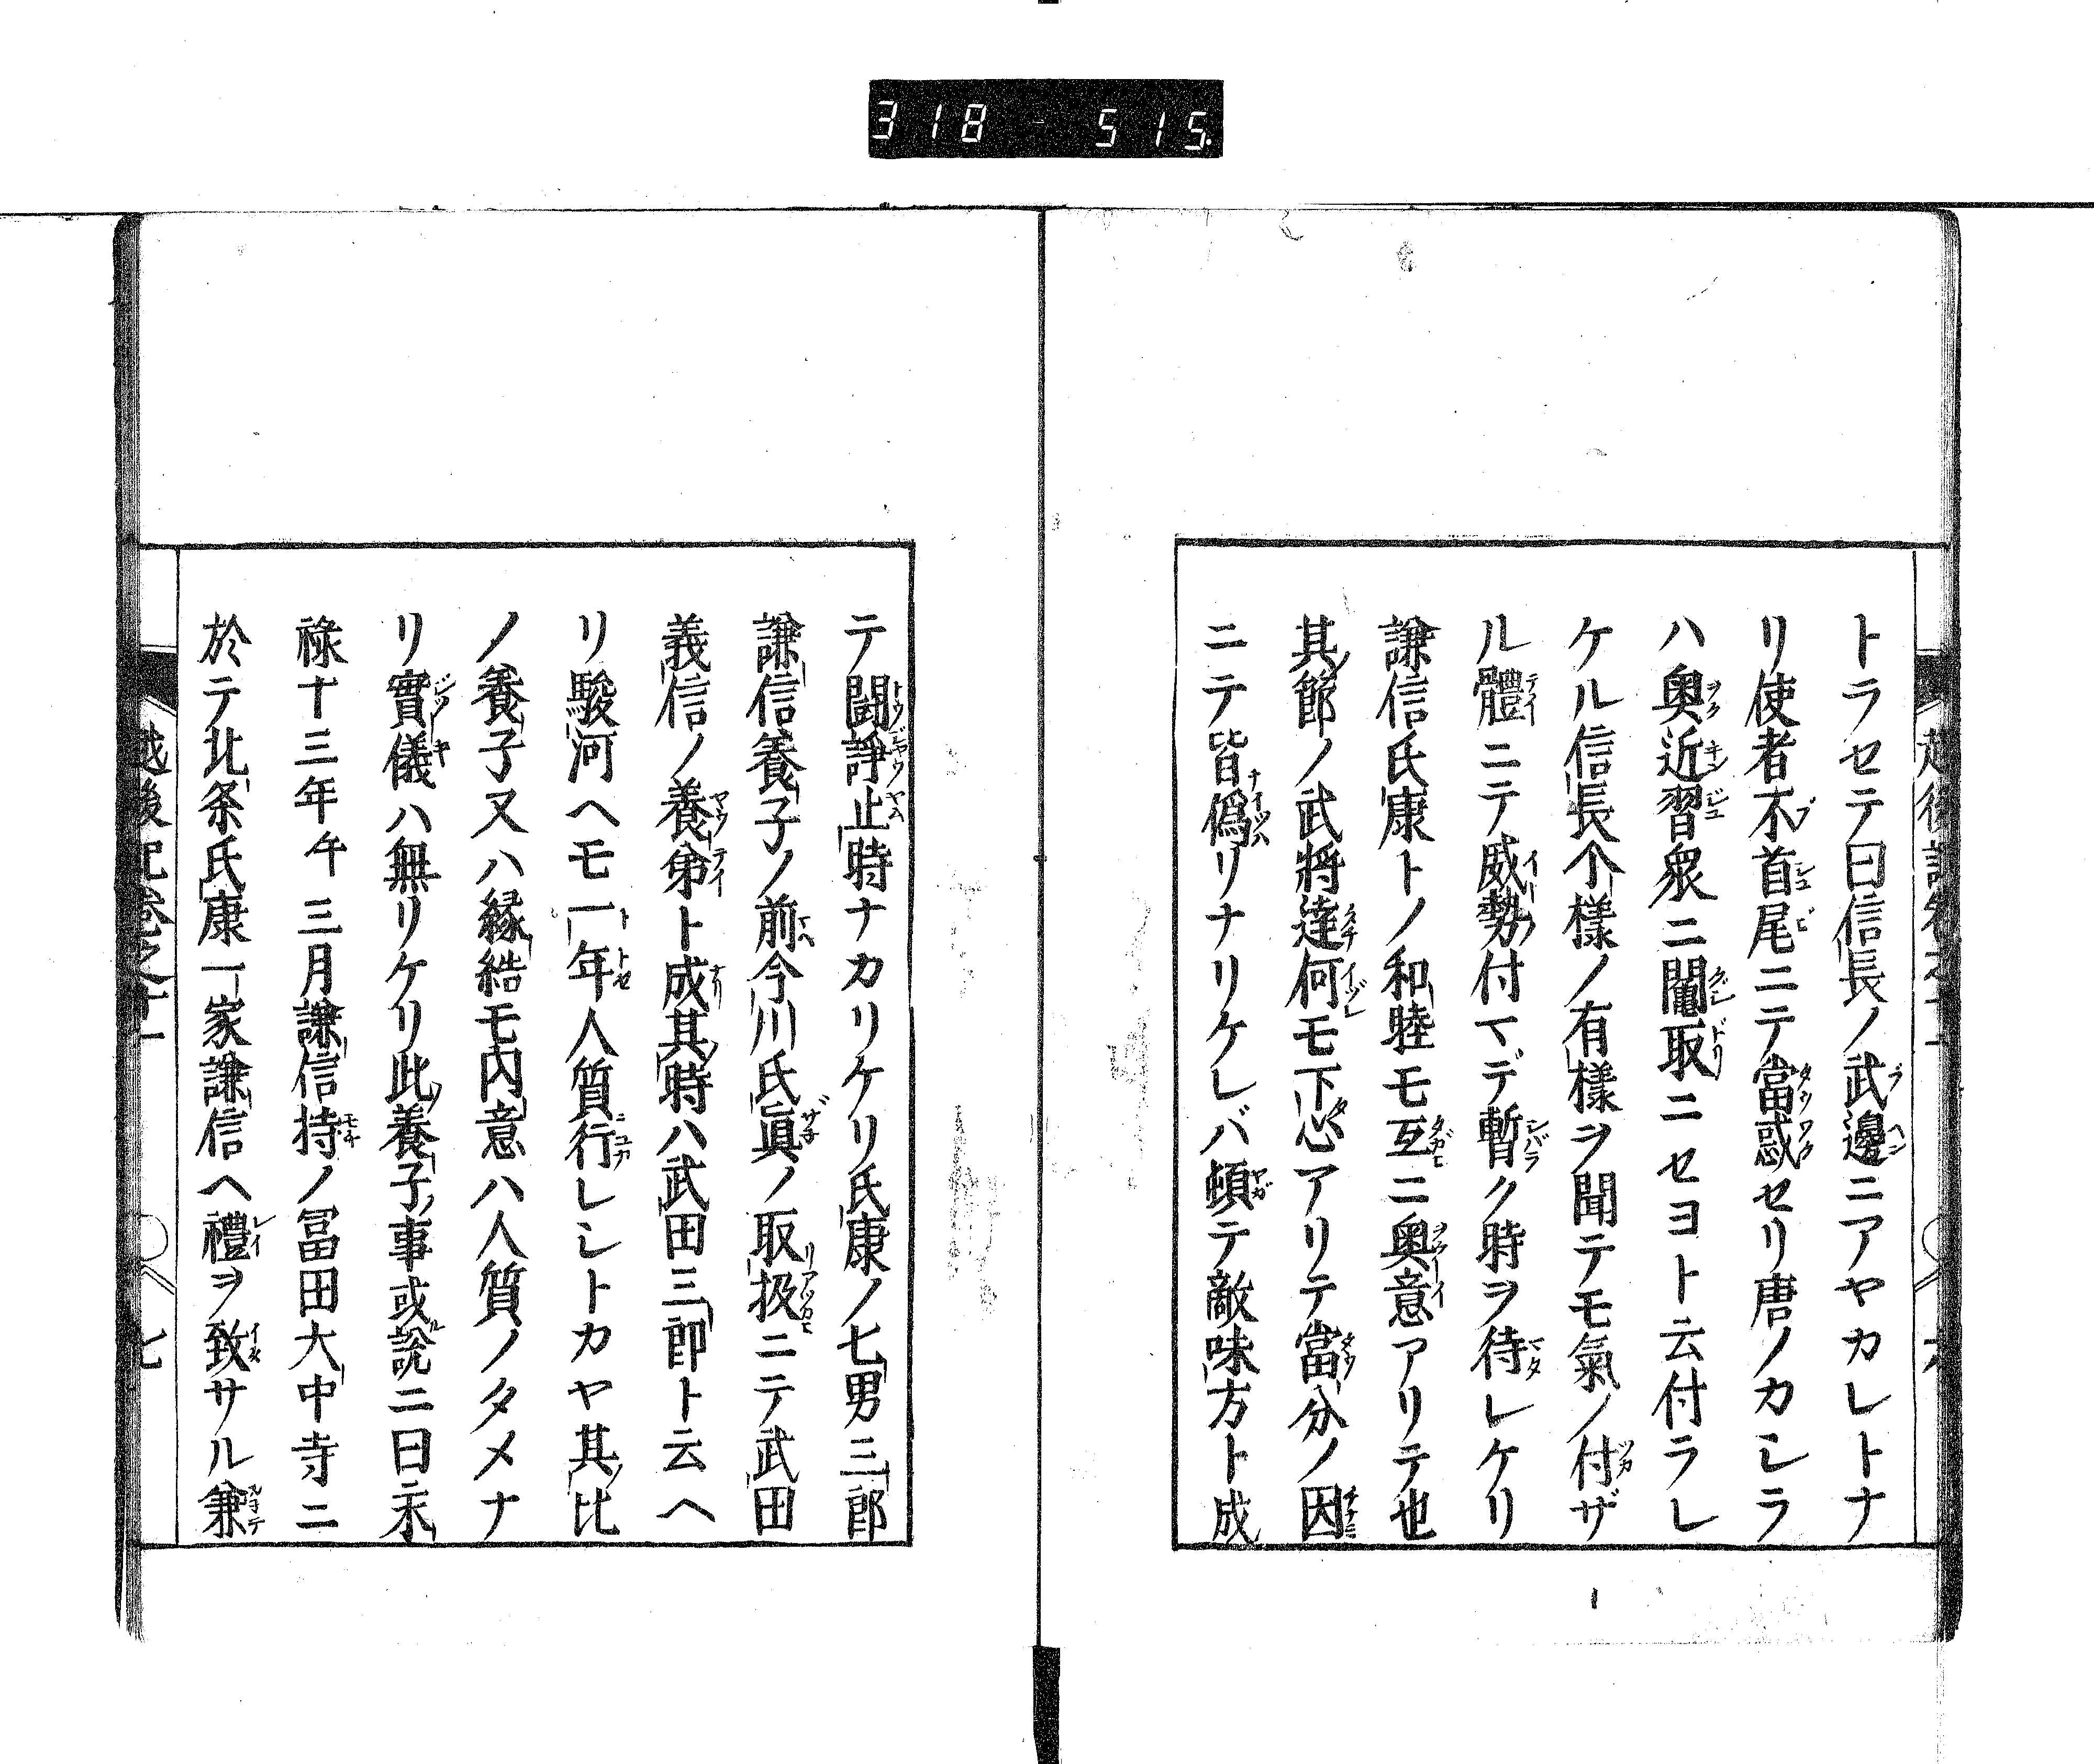 318-515
トラセテ曰信長ノ武邊ニアヤカレトナ
リ使者不首尾ニテ當惑セリ唐ノカシラ
ハ奥近習衆ニ鬮取ニセヨト云付ラレ
ケル信長个樣ノ有樣ヲ聞テモ氣ノ付ザ
ル體ニテ威勢付マデ暫ク時ヲ待レケリ
謙信氏康トノ和睦モ互ニ奥意アリテ也
其節ノ武將達何モ下心アリテ當分ノ因
ニテ皆僞リナリケレバ頓テ敵味方ト成
テ闘諍止時ナカリケリ氏康ノ七男三郎
謙信養子ノ前今川氏眞ノ取扱ニテ武田
義信ノ養弟ト成其時ハ武田三郎ト云ヘ
リ駿河ヘモ一年人質行レシトカヤ其比
ノ養子又ハ縁結モ内意ハ人質ノタメナ
リ實儀ハ無リケリ此養子ノ事或説ニ曰永
祿十三年午三月謙信持ノ冨田大中寺ニ
於テ北条氏康一家謙信ヘ禮ヲ致サル兼
越後記卷之十一
七